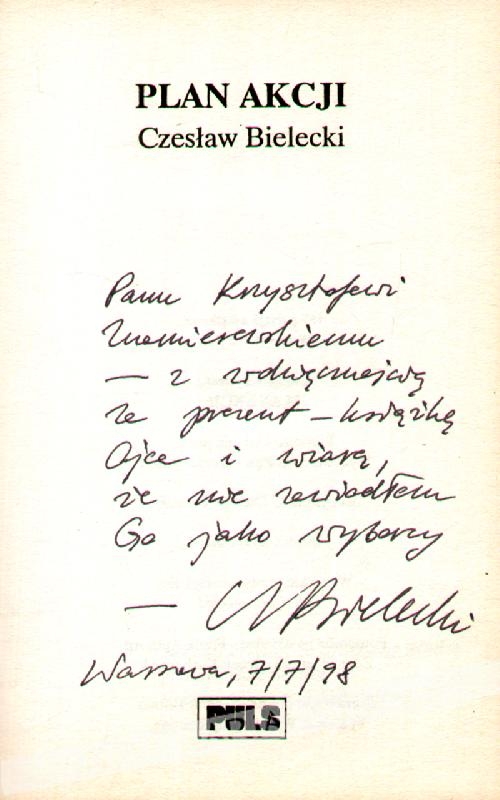 PLAN AKCJI
Czesław Bielecki
Panu Krzysztofowi
Znamierowskiemu
— z wdzięcznością
za prezent – książkę
Ojca i wiarą,
że nie zawiodłem
Go jako wyborcy
— Cz Bielecki
Warszawa, 7/7/98
PULS